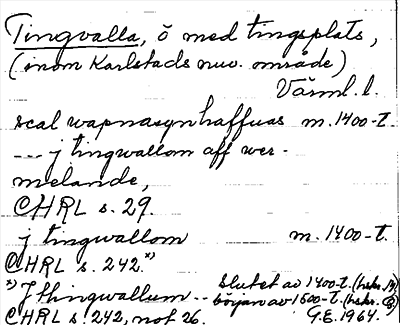 Tingvalla, ö med tingsplats,
(inom Karlstads nuv. område)
Värml. l.
scal wapnasyn haffuas m. 1400-t.
--- j tingwallom aff wer-
melande,
CHRL s. 29.
j tingwallom m. 1400-t.
CHRL s. 242.*)
*) J thingwallum -- slutet av 1400-t. (hskr.
början av 1500-t. (hskr.
CHRL s. 242, not 26. G.E. 1964.